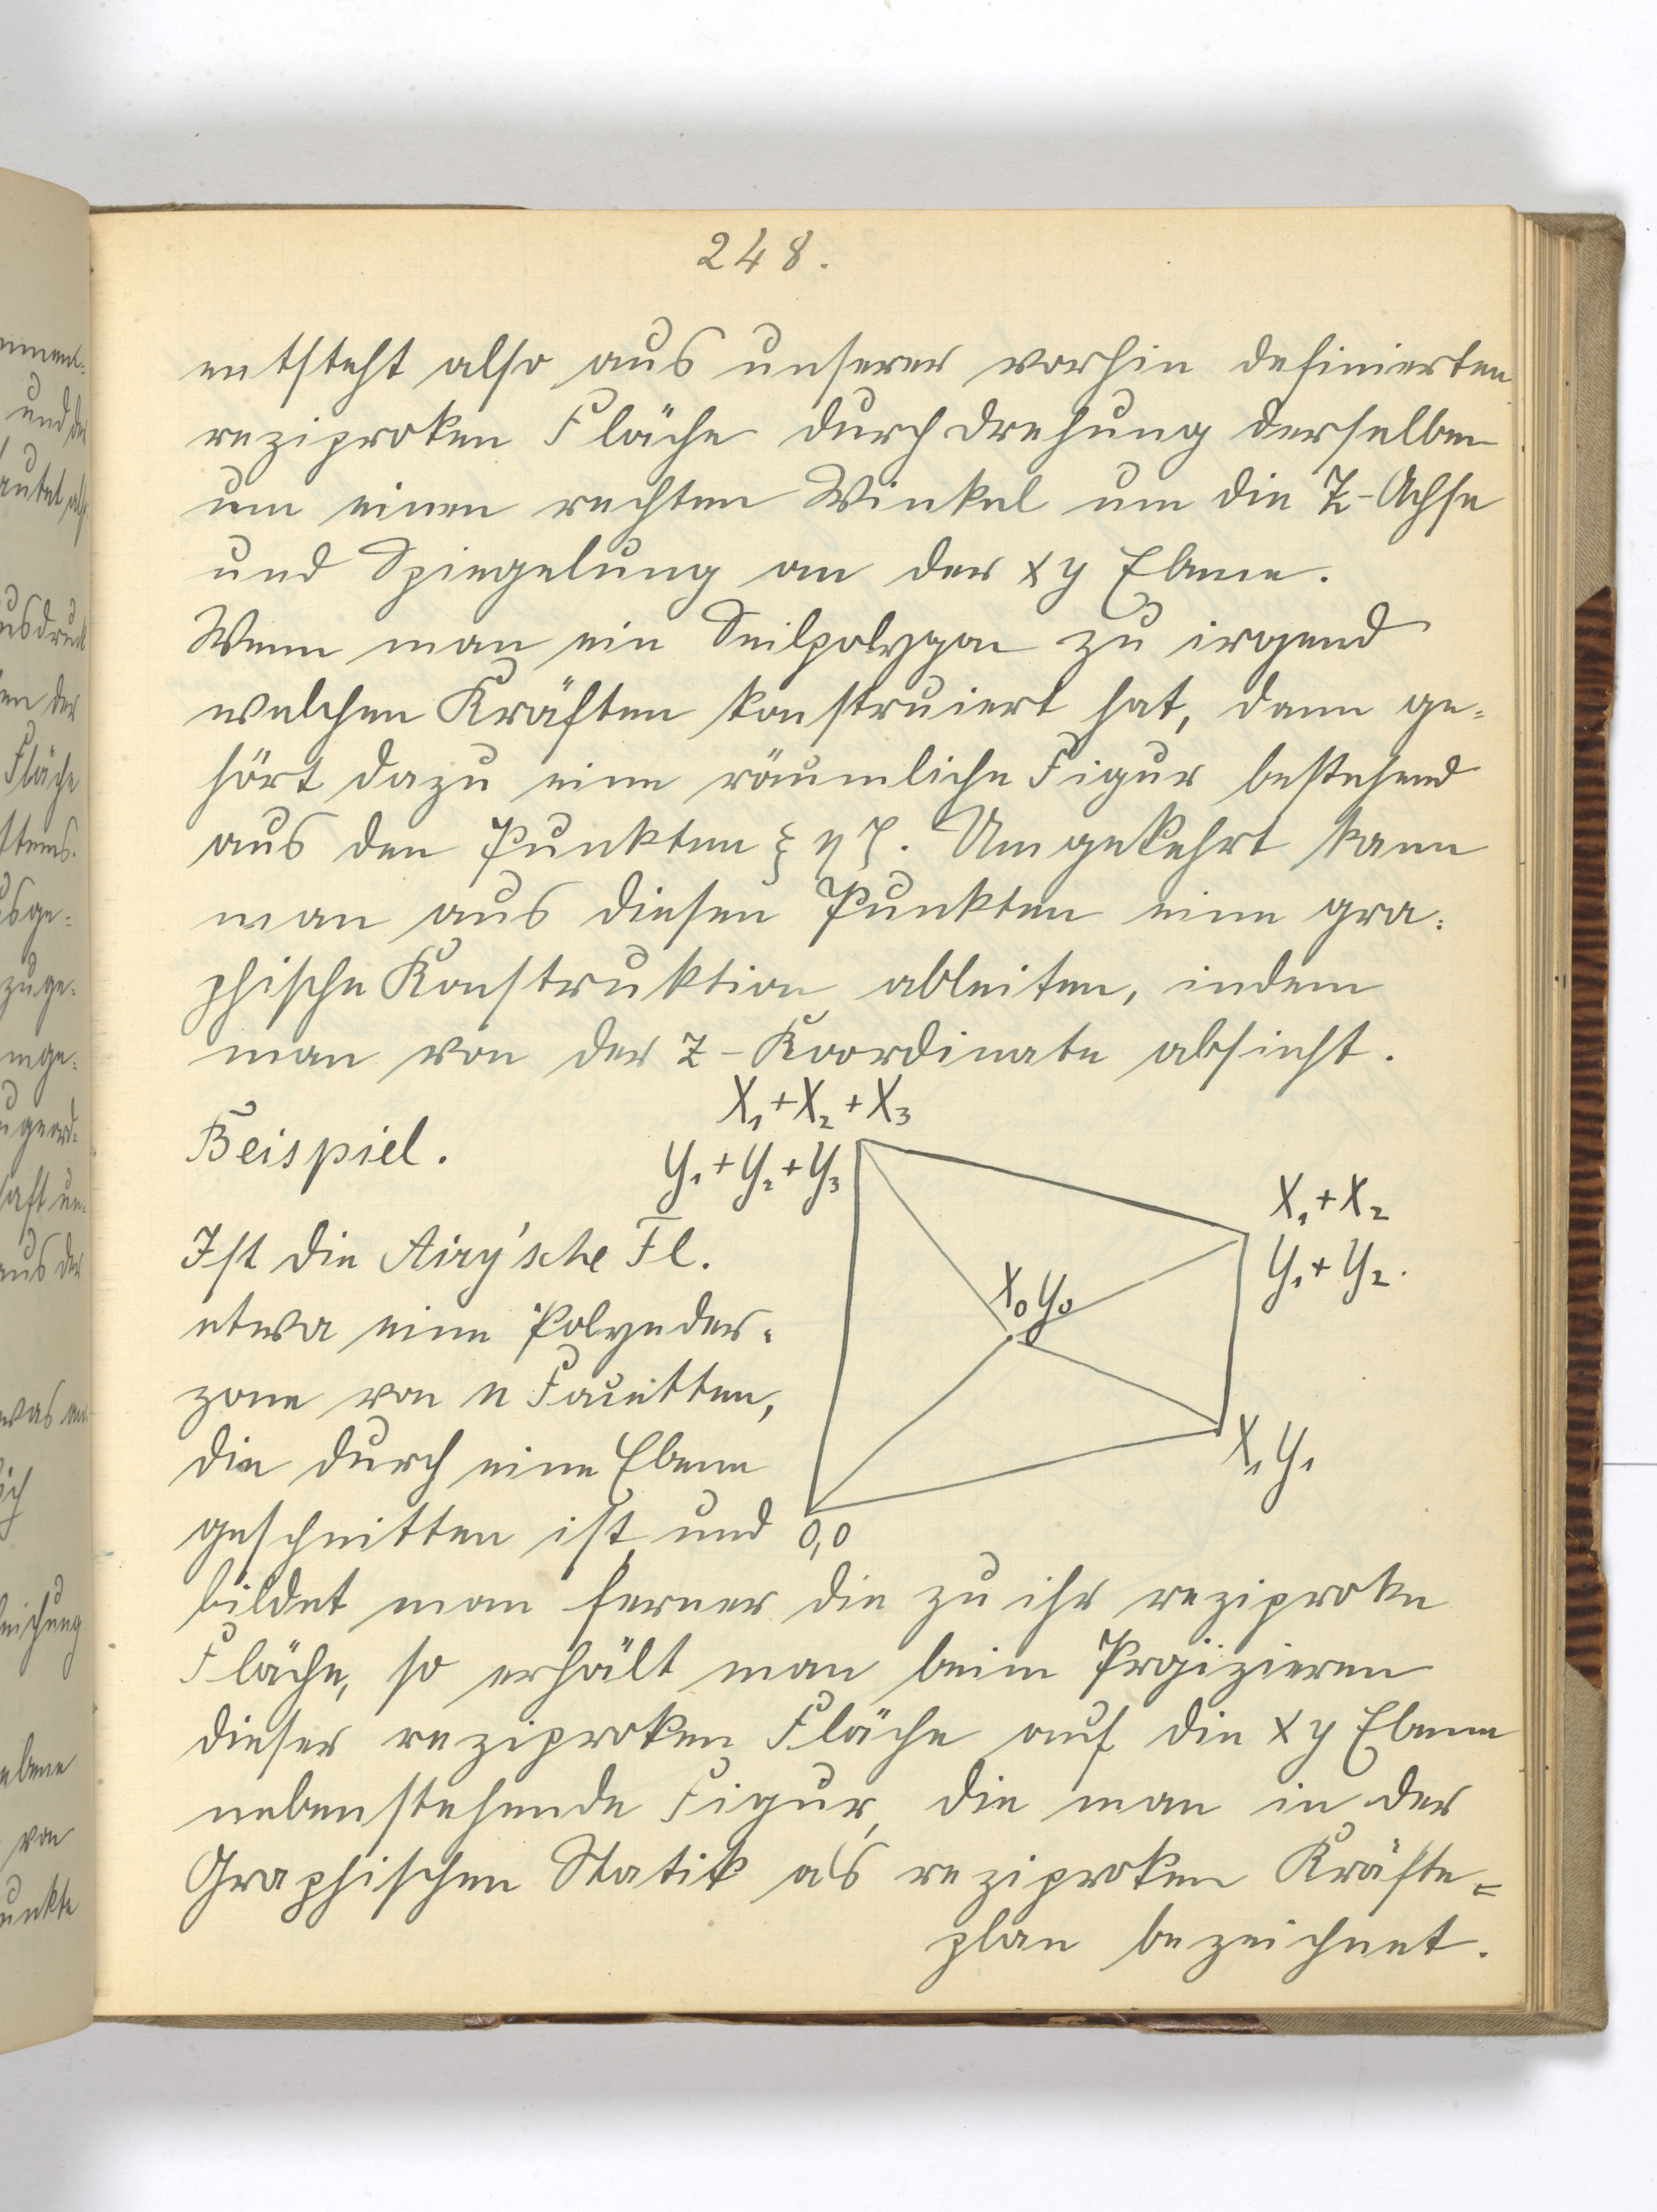 248.
entsteht also aus unserer vorhin definierten
reziproken Fläche durch drehung derselben
um einen rechten Winkel um die Z-Achse
und Spiegelung an der xy Ebene.
Wenn man ein Seilpolygon zu irgend
welchen Kräften konstruiert hat, dann ge=
hört dazu eine räumliche Figur bestehend
aus den Punkten ξ η ζ. Umgekehrt kann
man aus diesen Punkten eine gra=
phische Konstruktion ableiten, indem
man von der z-Koordinate absieht.
X₁+X₂+X₃
Beispiel.
Y₁+Y₂+Y₃
X₁+X₂
Y₁+Y₂.
Ist die Airy'sche Fl.
X₀Y₀
etwa eine Polyeder=
zone von n Facetten,
X₁Y₁
die durch eine Ebene
geschnitten ist, und
0,0
bildet man ferner die zu ihr reziproke
Fläche, so erhält man beim Projizieren
dieser reziproken Fläche auf die xy Ebene
nebenstehende Figur, die man in der
Graphischen Statik als reziproken Kräfte=
plan bezeichnet.
und der
Fläche
zuge=
von